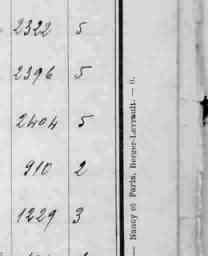 2322 5
2396 5
2404 5
910 2
1229 3
— Nancy et Paris, Berger-Levrault. — 6.